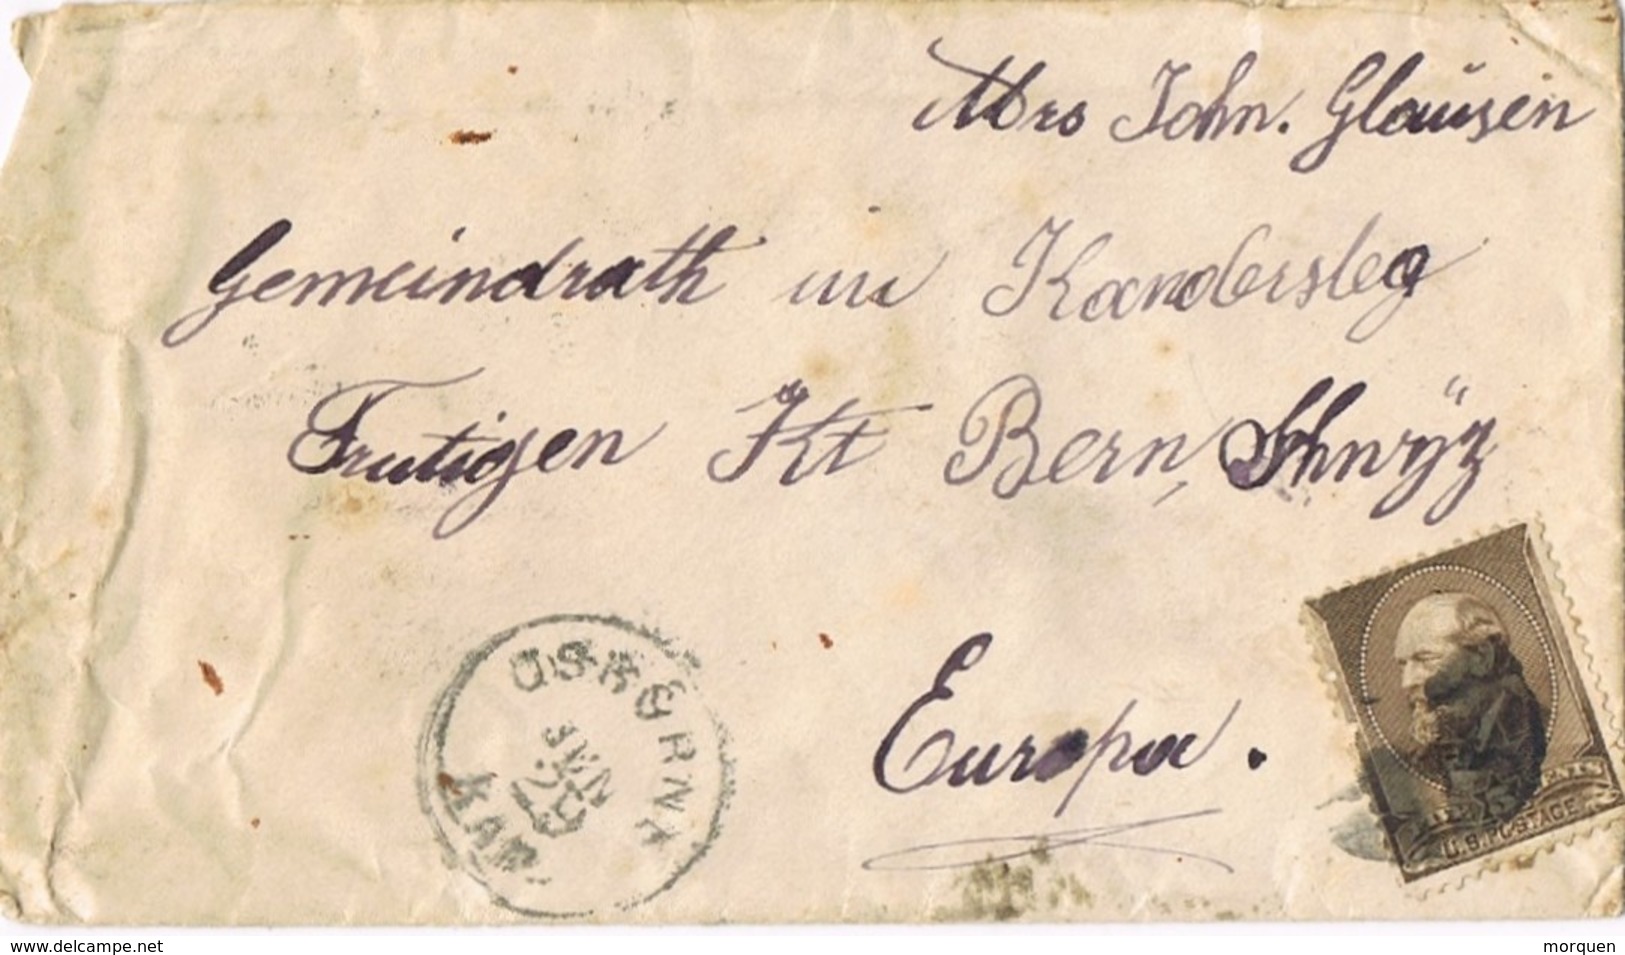 Mrs John. Glausen
Gemeindrath in Kandersteg
Frutigen Kt Bern, Shwÿz
Europa.
OSKERNA
KAN
U.S. POSTAGE
www.delcampe.net
morquen